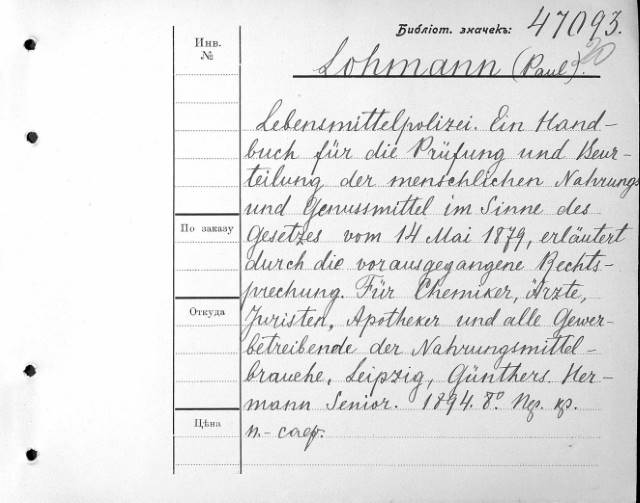 Библіот. значекъ: 47093.
20
Инв.
№
Lohmann (Paul).
Lebensmittelpolizei. Ein Hand-
buch für die Prüfung und Beur-
teilung der menschlichen Nahrungs
und Genussmittel im Sinne des
По заказу
Gesetzes vom 14 Mai 1879, erläutert
durch die vorausgegangene Rechts-
sprechung. Für Chemiker, Ärzte,
Откуда
Juristen, Apotheker und alle Gewer-
betreibende der Nahrungsmittel-
branche. Leipzig, Günthers. Her-
mann Senior. 1894. 8º. Пер. кр.
Цѣна
п.-саф.